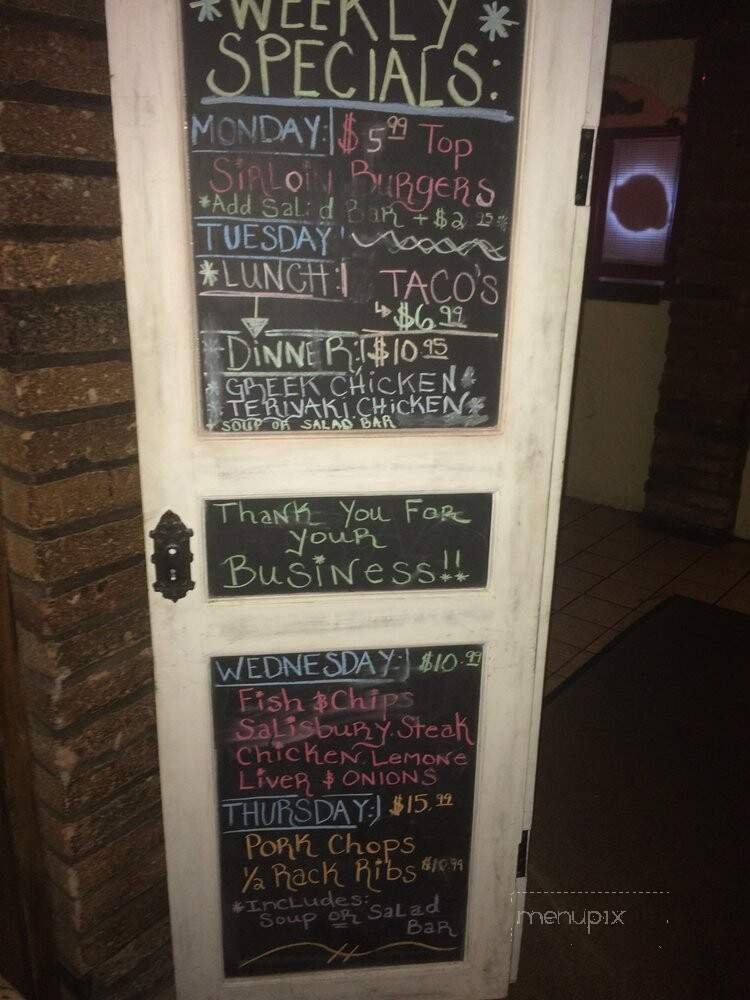 *WEEKLY*
SPECIALS:
MONDAY: $5.99 Top
SiRLoiN BURgeRs
*Add Salid BaR + $2.95*
TUESDAY:
*LUNCH: TACO'S
$6.99
*DiNNER: $10.95
*GREEK CHiCKEN*
*TERiYAKi CHiCKEN*
+ SOUP OR SALAD BAR
ThaNK You FoR
youR
BusiNess!!
WEDNESDAY: $10.99
Fish & Chips
Salisbury Steak
ChicKeN Lemone
LiveR & ONiONS
THURSDAY: $15.99
PoRK Chops
1/2 Rack Ribs $10.99
*INcLudes:
Soup OR Salad
BaR
menupix